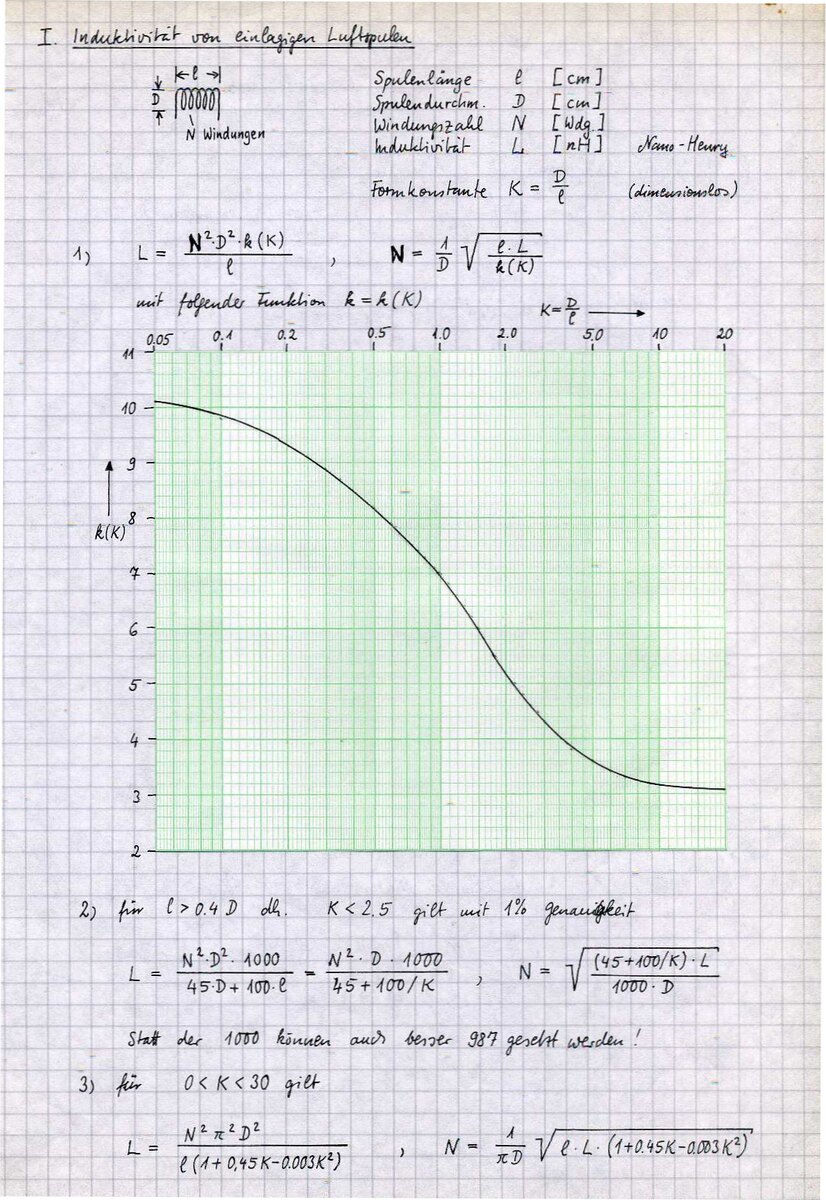 I. Induktivität von einlagigen Luftspulen
l
D
N Windungen
Spulenlänge l [cm]
Spulendurchm. D [cm]
Windungszahl N [Wdg.]
Induktivität L [nH] Nano-Henry
Formkonstante K = D/l (dimensionslos)
1) L = N²·D²·k(K) / l , N = 1/D √(l·L / k(K))
mit folgender Funktion k = k(K)
K = D/l
0.05 0.1 0.2 0.5 1.0 2.0 5.0 10 20
11
10
9
8
k(K)
7
6
5
4
3
2
2) für l > 0.4 D dh. K < 2.5 gilt mit 1% Genauigkeit
L = N²·D²·1000 / 45·D + 100·l = N²·D·1000 / 45 + 100/K , N = √((45+100/K)·L / 1000·D)
Statt der 1000 können auch besser 987 gesetzt werden!
3) für 0 < K < 30 gilt
L = N² π² D² / l (1 + 0,45K - 0.003K²) , N = 1/πD √(l·L·(1+0.45K-0.003K²))